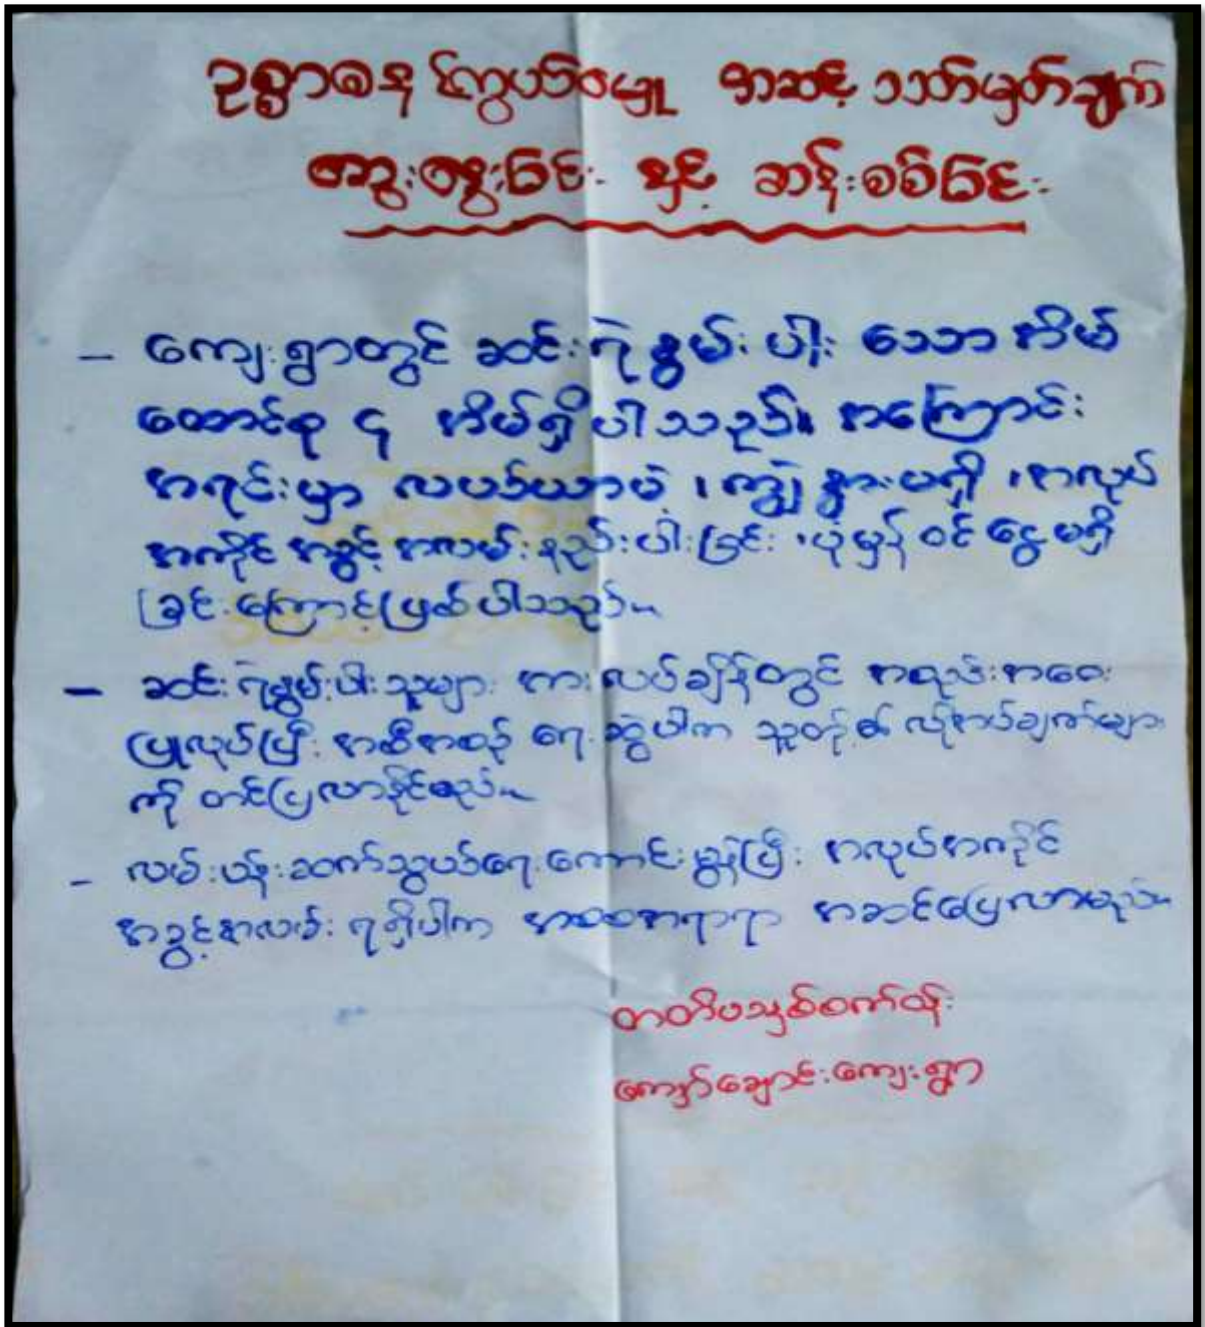 ဥစ္စာဓန ကြွယ်ဝမှု အဆင့် သတ်မှတ်ချက်
ဆွေးနွေးခြင်း နှင့် ဆန်းစစ်ခြင်း
- ကျေးရွာတွင် ဆင်းရဲနွမ်းပါး သော အိမ်
ထောင်စု ၄ အိမ်ရှိပါသည်။ အကြောင်း
အရင်းမှာ လယ်ယာမဲ့ ၊ ကျွဲနွားမရှိ ၊ အလုပ်
အကိုင် အခွင့် အလမ်းနည်းပါးခြင်း ၊ ပုံမှန် ဝင်ငွေမရှိ
ခြင်းကြောင့်ဖြစ်ပါသည်။
- ဆင်းရဲနွမ်းပါးသူများ အားလပ်ချိန်တွင် အစည်းအဝေး
ပြုလုပ်ပြီး အစီအစဉ် ရေးဆွဲပါက သူတို့၏ လိုအပ်ချက်များ
ကို တင်ပြလာနိုင်မည်။
- လမ်းပန်းဆက်သွယ်ရေးကောင်းမွန်ပြီး အလုပ်အကိုင်
အခွင့်အလမ်း ရရှိပါက အစစအရာရာ အဆင်ပြေလာမည်။
ကျော်ချောင်းကျေးရွာ